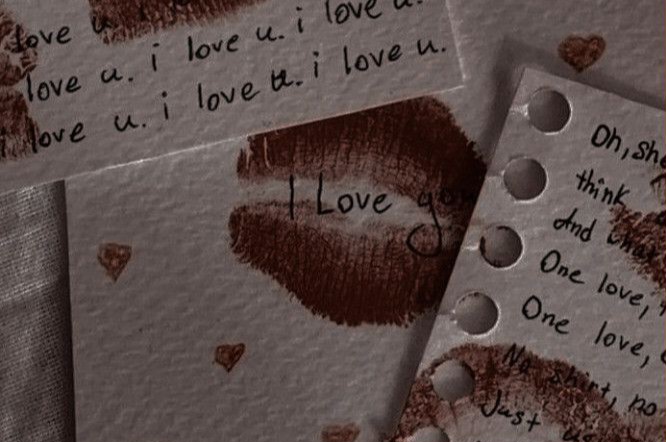 love u. i love u.
love u. i love u. i love u.
i love u. i love u. i love u.
I Love you
Oh, she
think
And what
One love,
One love,
No shirt, no
Just